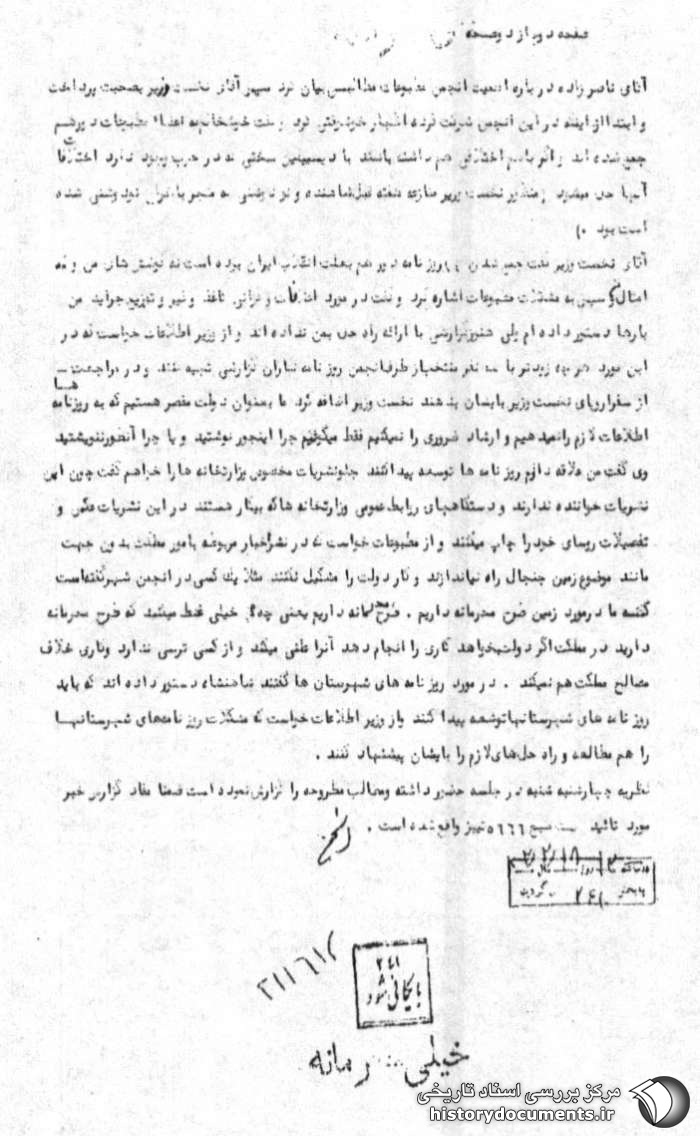 صفحه دوم از دو صفحه
آقای ناصر زاده درباره اهمیت انجمن مطبوعات مطالبی بیان کرد سپس آقای نخست وزیر بصحبت پرداخت
و ابتدا از اینکه در این انجمن شرکت کرده اظهار خوشوقتی کرد و گفت خوشحالم که اعضاء مطبوعات دور هم
جمع شده اند و اگر باهم اختلافی هم داشته باشند با دیسیپلین سختی که در حزب وجود دارد اختلافات
آنها حل میشود منظور نخست وزیر منازعه هفته قبل
است بود .)
آقای نخست وزیر گفت جمع شدن روزنامه دور هم بعلت انقلاب ایران بوده است که کوشش شان من و
امثال سپس به مشکلات مطبوعات اشاره کرد و گفت در مورد اختلافات و گرانی کاغذ و غیر و توزیع جراید من
بارها دستور داده ام ولی هنوز گزارشی با ارائه راه حل بمن نداده اند و از وزیر اطلاعات خواست که در
این مورد هر چه زودتر با سه نفر منتخب از طرف انجمن روزنامه نگاران گزارشی تهیه کنند و در مراجعت
از سفر اروپای نخست وزیر بایشان بدهند نخست وزیر اضافه کرد ما بعنوان دولت مقصر هستیم که به روزنامه ها
اطلاعات لازم را نمیدهیم و ارشاد ضروری را نمیکنیم فقط میگوئیم چرا اینجور نوشتید و یا چرا آنطور ننوشتید
وی گفت من علاقه دارم روزنامه ها توسعه پیدا کنند جلو نشریات مخصوص وزارتخانه ها را خواهم گرفت چون این
نشریات خواننده ندارند و دستگاههای روابط عمومی وزارتخانه ها که بیکار هستند در این نشریات عکس و
تفصیلات روسای خود را چاپ میکنند و از مطبوعات خواست که در نشر اخبار مربوطه بامور مملکت بدون جهت
مانند موضوع زمین جنجال راه نیاندازند و کار دولت را مشکل نکنند مثلا یک کسی در انجمن شهر گفته است
گفته ما در مورد زمین طرح محرمانه داریم . طرح محرمانه داریم یعنی چه؟ خیلی غلط میکنید که طرح محرمانه
دارید در مملکت اگر دولت بخواهد کاری را انجام دهد آنرا علنی میکند و از کسی ترسی ندارد و کاری خلاف
مصالح مملکت هم نمیکند . در مورد روزنامه های شهرستان ها گفتند شاهنشاه دستور داده اند که باید
روزنامه های شهرستانها توسعه پیدا کنند و از وزیر اطلاعات خواست که مشکلات روزنامه های شهرستانها
را هم مطالعه و راه حل های لازم را بایشان پیشنهاد کنند .
نظریه چهارشنبه شنبه در جلسه حضور داشته و مطالب مطروحه را گزارش نموده است ضمنا مفاد گزارش خبر
مورد تائید منبع ۵۶۶۶ نیز واقع شده است .
۲۴۱
بایگانی شود
۳۱۱۶۱۲
خیلی محرمانه
مرکز بررسی اسناد تاریخی
historydocuments.ir